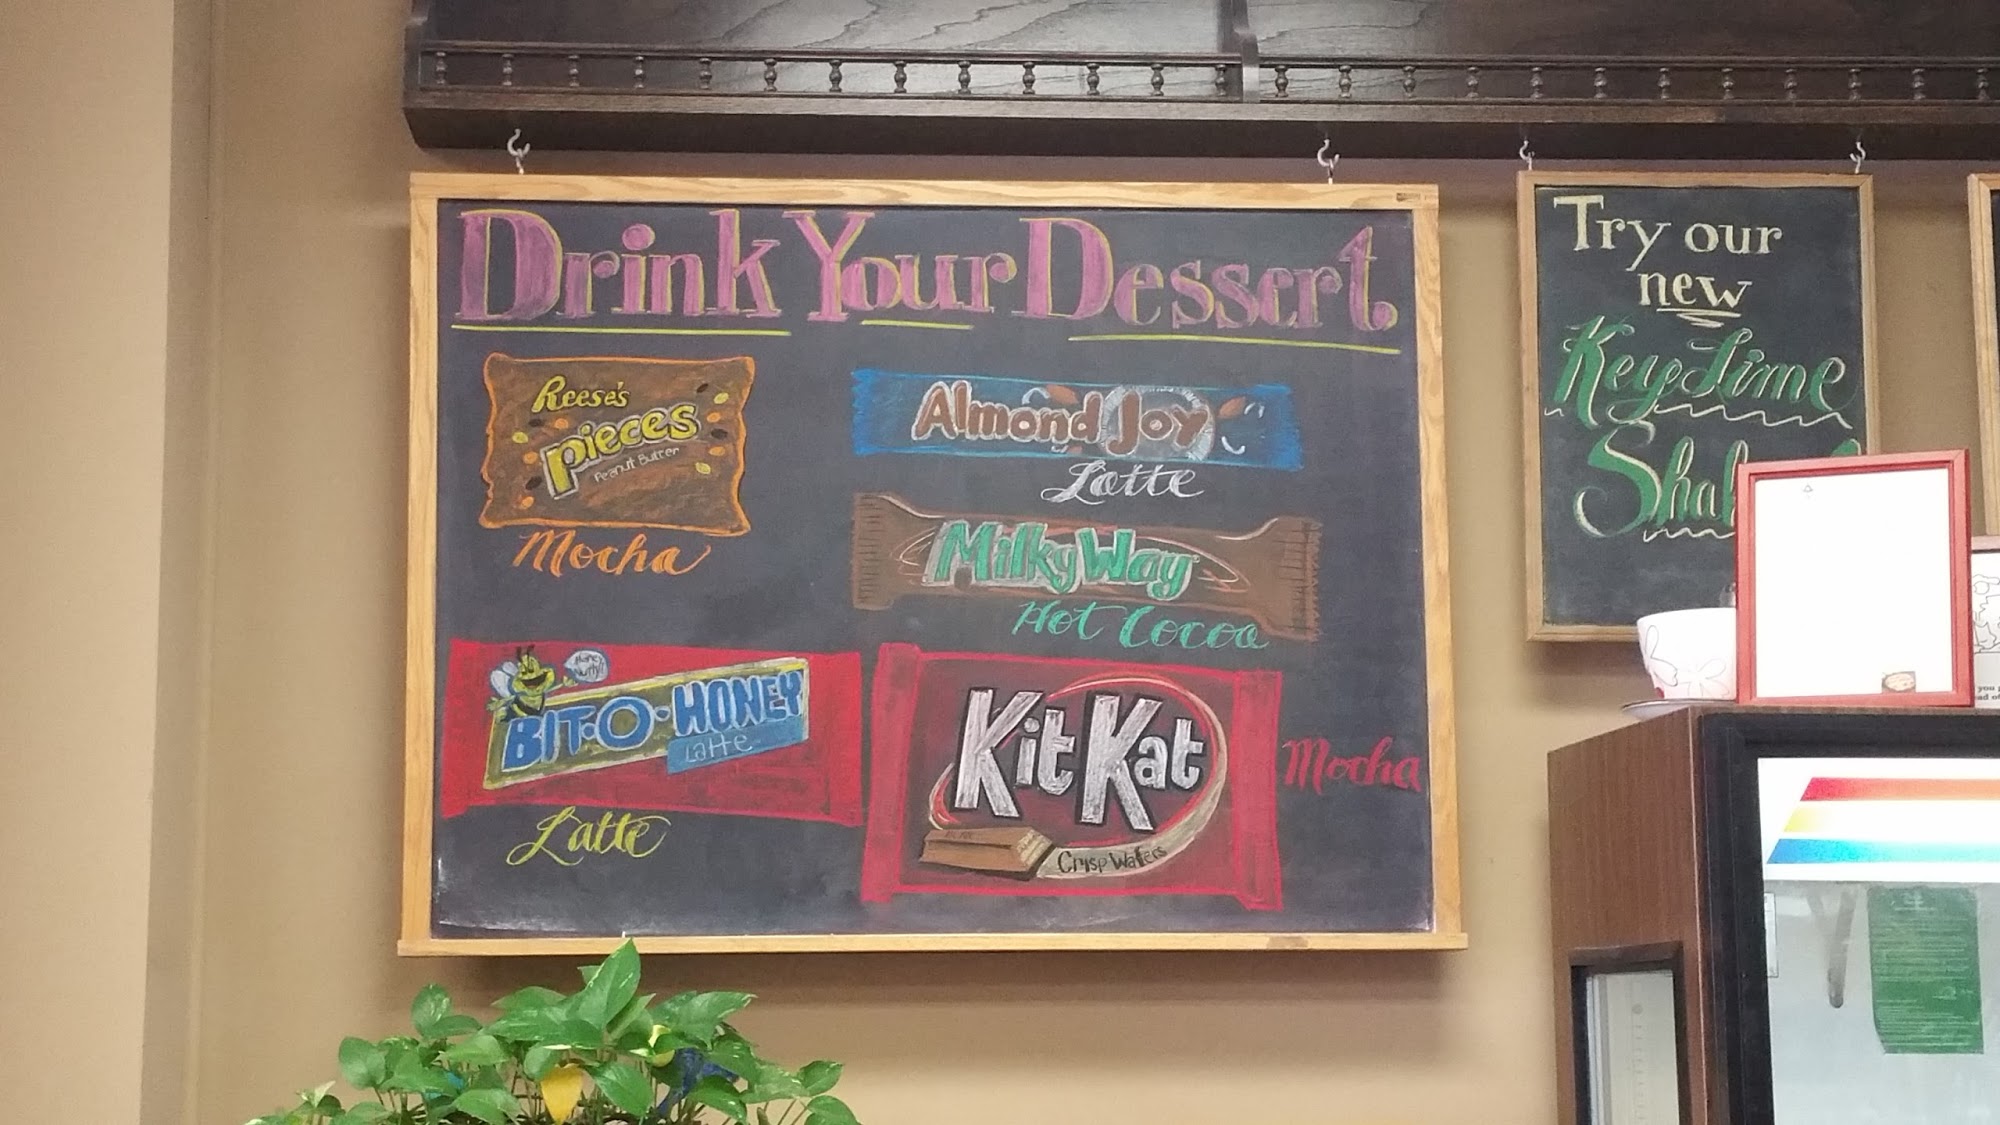 Drink Your Dessert
Reese's
pieces
Peanut Butter
Mocha
Almond Joy
Latte
Milky Way
Hot Cocoa
Honey
BIT·O·HONEY
Latte
Latte
Kit Kat
Crisp Wafers
Mocha
Try our
new
Key Lime
you